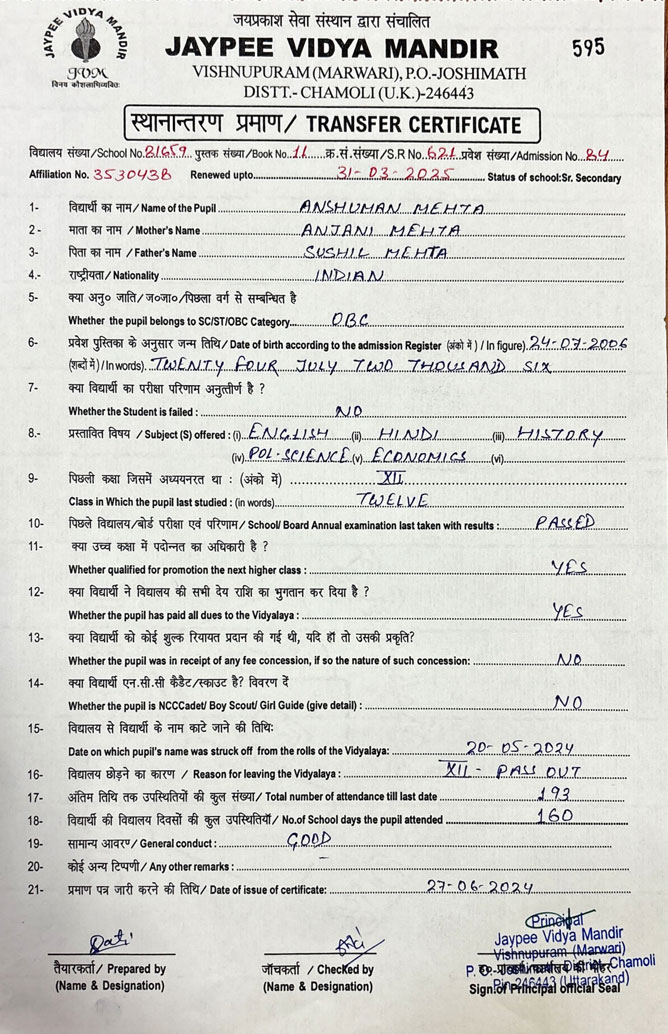 JAYPEE VIDYA MANDIR
JVM
विनय कौशलाभिव्यक्तिः
जयप्रकाश सेवा संस्थान द्वारा संचालित
JAYPEE VIDYA MANDIR 595
VISHNUPURAM (MARWARI), P.O.-JOSHIMATH
DISTT.- CHAMOLI (U.K.)-246443
स्थानान्तरण प्रमाण/ TRANSFER CERTIFICATE
विद्यालय संख्या/School No. 81659 पुस्तक संख्या/Book No. 11 क्र.सं.संख्या/S.R No. 621 प्रवेश संख्या/Admission No. 84
Affiliation No. 3530438 Renewed upto 31-03-2025 Status of school:Sr. Secondary
1- विद्यार्थी का नाम/ Name of the Pupil ANSHUMAN MEHTA
2- माता का नाम/ Mother's Name ANJANI MEHTA
3- पिता का नाम/ Father's Name SUSHIL MEHTA
4.- राष्ट्रीयता/ Nationality INDIAN
5- क्या अनु० जाति/ ज०जा०/पिछला वर्ग से सम्बन्धित है
Whether the pupil belongs to SC/ST/OBC Category OBC
6- प्रवेश पुस्तिका के अनुसार जन्म तिथि/ Date of birth according to the admission Register (अंको में ) / In figure) 24-07-2006
(शब्दों में) / In words) TWENTY FOUR JULY TWO THOUSAND SIX
7- क्या विद्यार्थी का परीक्षा परिणाम अनुत्तीर्ण है ?
Whether the Student is failed : NO
8.- प्रस्तावित विषय / Subject (S) offered : (i) ENGLISH (ii) HINDI (iii) HISTORY
(iv) POL-SCIENCE (v) ECONOMICS (vi)
9- पिछली कक्षा जिसमें अध्ययनरत था : (अंको में) XII
Class in Which the pupil last studied : (in words) TWELVE
10- पिछले विद्यालय/बोर्ड परीक्षा एवं परिणाम/ School/ Board Annual examination last taken with results : PASSED
11- क्या उच्च कक्षा में पदोन्नत का अधिकारी है ?
Whether qualified for promotion the next higher class : YES
12- क्या विद्यार्थी ने विद्यालय की सभी देय राशि का भुगतान कर दिया है ?
Whether the pupil has paid all dues to the Vidyalaya : YES
13- क्या विद्यार्थी को कोई शुल्क रियायत प्रदान की गई थी, यदि हाँ तो उसकी प्रकृति?
Whether the pupil was in receipt of any fee concession, if so the nature of such concession: NO
14- क्या विद्यार्थी एन.सी.सी कैडैट/स्काउट है? विवरण दें
Whether the pupil is NCCCadet/ Boy Scout/ Girl Guide (give detail) : NO
15- विद्यालय से विद्यार्थी के नाम काटे जाने की तिथिः
Date on which pupil's name was struck off from the rolls of the Vidyalaya: 20-05-2024
16- विद्यालय छोड़ने का कारण / Reason for leaving the Vidyalaya : XII - PASS OUT
17- अंतिम तिथि तक उपस्थितियों की कुल संख्या/ Total number of attendance till last date 193
18- विद्यार्थी की विद्यालय दिवसों की कुल उपस्थितियॉ/ No.of School days the pupil attended 160
19- सामान्य आवरण/ General conduct : GOOD
20- कोई अन्य टिप्पणी/ Any other remarks : –
21- प्रमाण पत्र जारी करने की तिथि/ Date of issue of certificate: 27-06-2024
तैयारकर्ता / Prepared by
(Name & Designation)
जॉचकर्ता / Checked by
(Name & Designation)
Principal
Jaypee Vidya Mandir
Vishnupuram (Marwari)
District Chamoli
Pin-246443 (Uttarakand)
Sign.of Principal official Seal